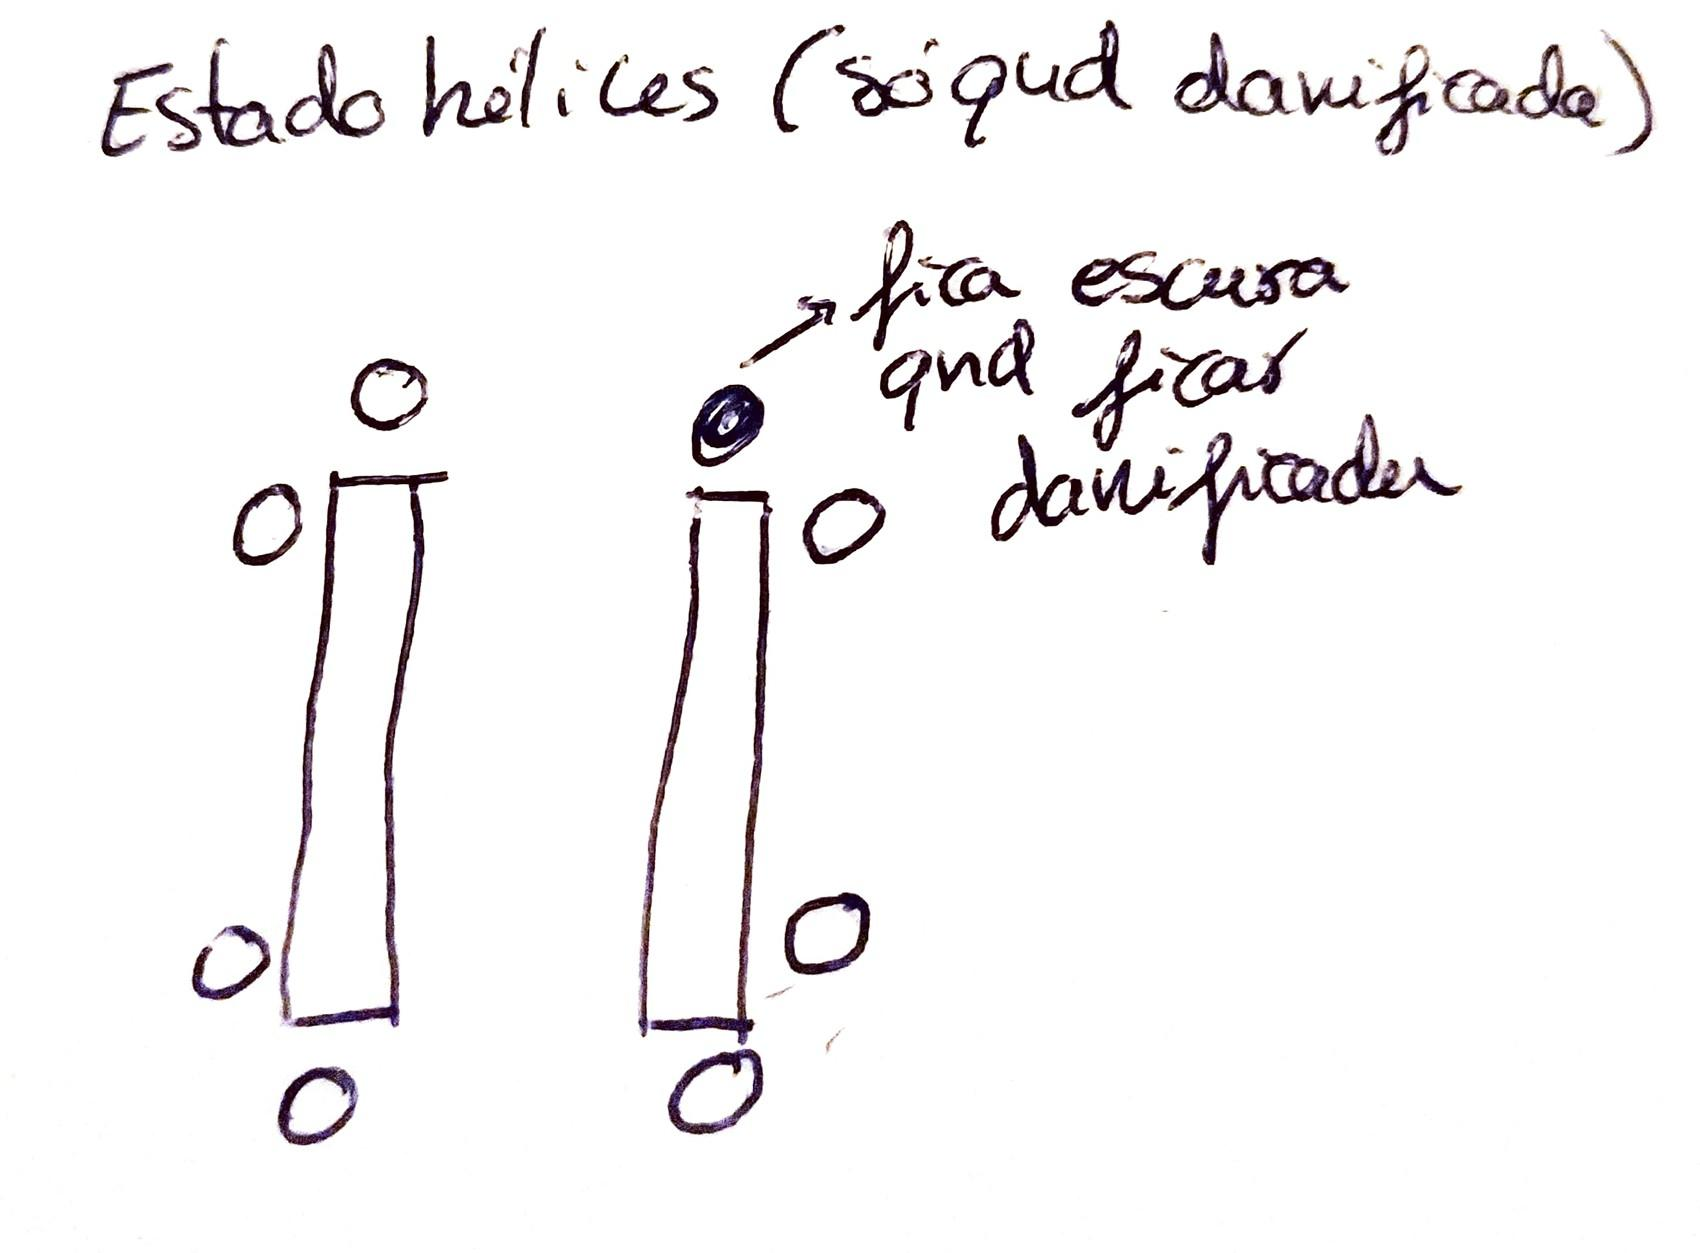 Estado hélices (só qnd danificada)
fica escura
qnd ficar
danificada